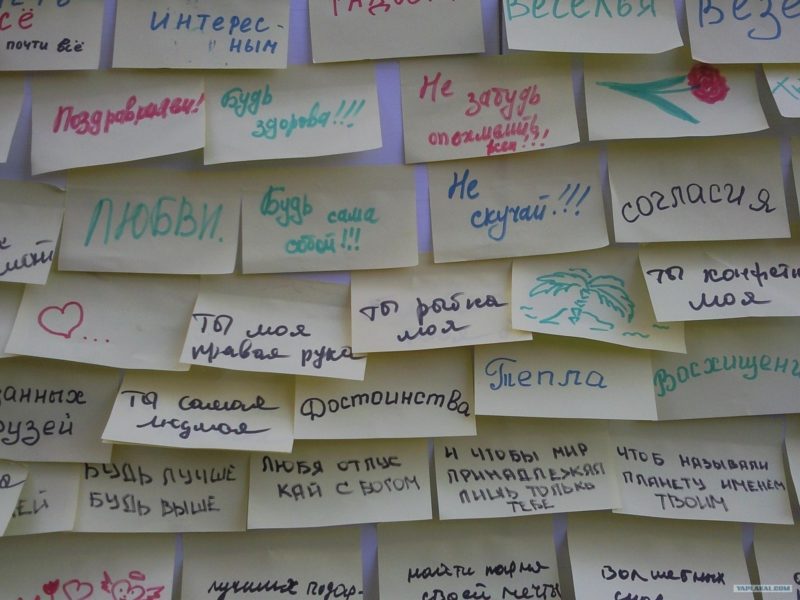 сё
почти всё
Интерес-
ным
Веселья
Везе
Поздравляем!
Будь
здорова!!!
Не
забудь
опохмелиться
всем!!!
Любви.
Будь сама
собой!!!
Не
скучай!!!
согласия
...
ты моя
правая рука
ты рыбка
моя
ты конфетк
моя
анных
рузей
ты самая
Достоинства
Тепла
Восхищен
ей
Будь лучше
Будь выше
любя отпус
кай с богом
и чтобы мир
принадлежал
лишь только
тебе
чтоб называли
планету именем
твоим
лучших подар-
найти парня
своей мечты
волшебных
YAPLAKAL.COM